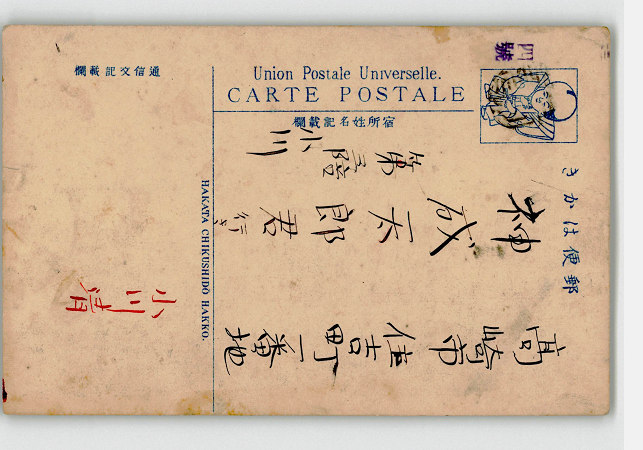 四號
Union Postale Universelle.
CARTE POSTALE
宿所姓名記載欄
通信文記載欄
郵便はかき
高崎市住吉町一番地
神成 郎君行き
第三
小川
小川清
HAKATA CHIKUSHIDŌ HAKKO.